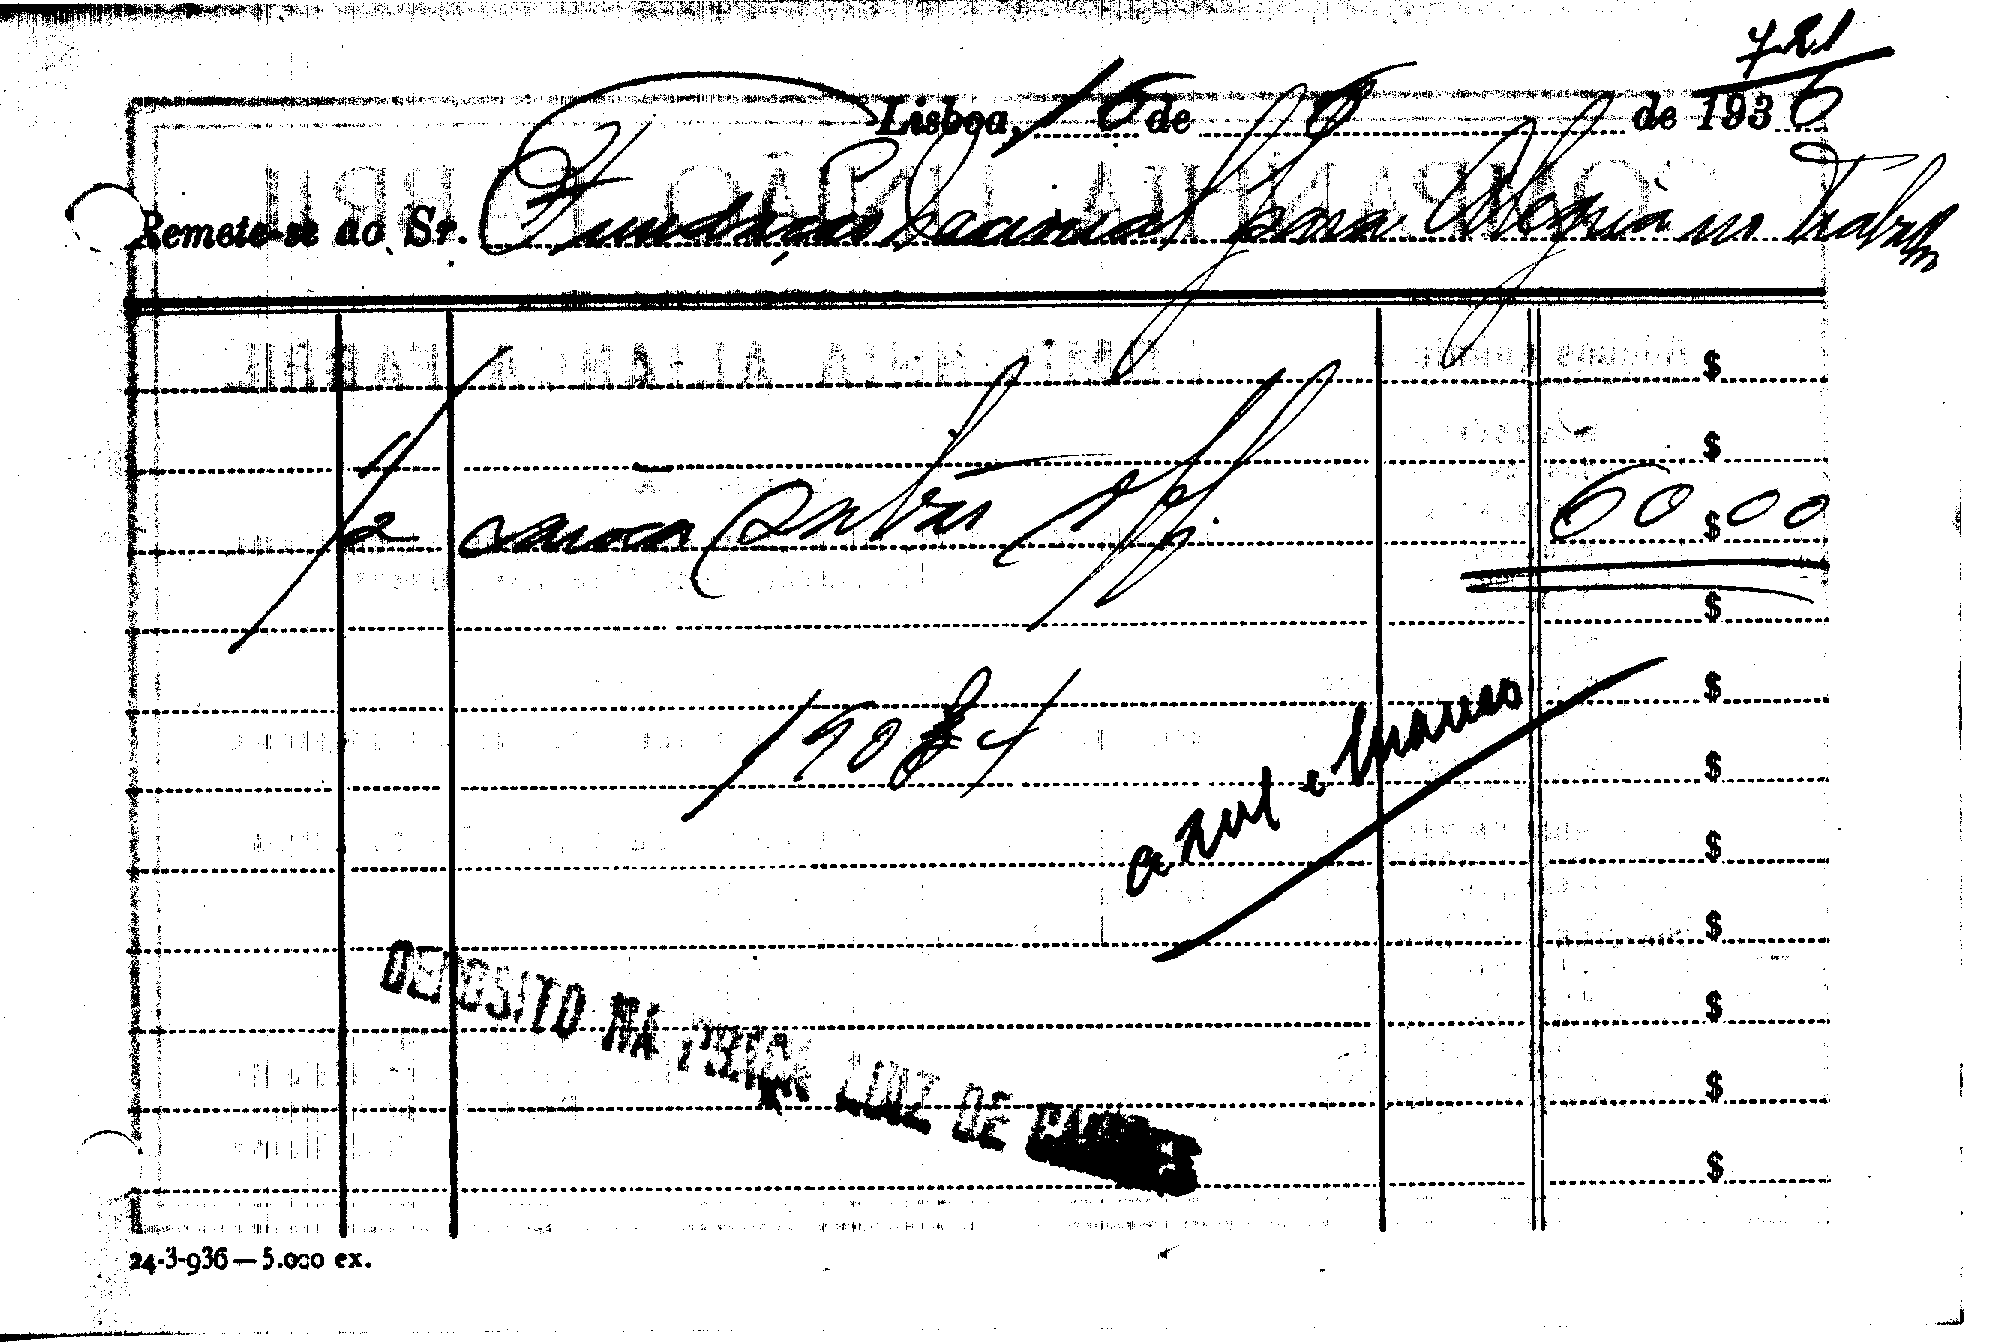 721
Lisboa, 16 de 6 de 1936
Remete-se ao Sr. Fundação Nacional para Alegria no Trabalho
$
$
1/2 60$00
$
$
azul e branco
$
$
$
$
DEPOSITO NA LUIZ DE CAMÕES
$
$
24-3-936 — 5.000 ex.